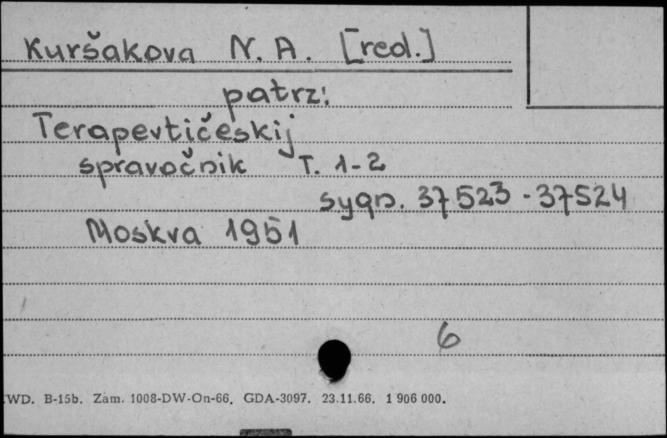 Kuršakova N. A. [red.]
patrz:
Terapevtičeskij
spravočnik T. 1-2
sygn. 37523 - 37524
Moskva 1951
6
WD. B-15b. Zam. 1008-DW-On-66. GDA-3097. 23.11.66. 1 906 000.